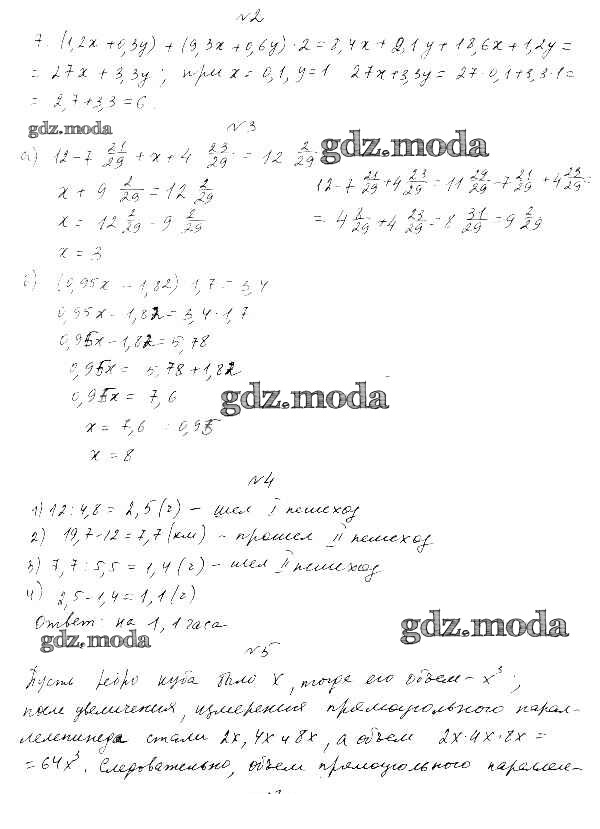 №2
7. (1,2x + 0,3y) + (9,3x + 0,6y) · 2 = 8,4x + 2,1y + 18,6x + 1,2y =
= 27x + 3,3y ; при x = 0,1, y = 1 27x + 3,3y = 27 · 0,1 + 3,3 · 1 =
= 2,7 + 3,3 = 6.
gdz.moda
№3
gdz.moda
а) 12 - 7 21/29 + x + 4 23/29 = 12 2/29
12 - 7 21/29 + 4 23/29 = 11 29/29 - 7 21/29 + 4 23/29 =
x + 9 2/29 = 12 2/29
= 4 8/29 + 4 23/29 = 8 31/29 = 9 2/29
x = 12 2/29 - 9 2/29
x = 3
б) (0,95x - 1,82) : 1,7 = 3,4
0,95x - 1,82 = 3,4 · 1,7
0,95x - 1,82 = 5,78
0,95x = 5,78 + 1,82
0,95x = 7,6
gdz.moda
x = 7,6 : 0,95
x = 8
№4
1) 12 : 4,8 = 2,5 (ч) - шел I пешеход
2) 19,7 - 12 = 7,7 (км) - прошел II пешеход
3) 7,7 : 5,5 = 1,4 (ч) - шел II пешеход
4) 2,5 - 1,4 = 1,1 (ч)
Ответ: на 1,1 часа.
gdz.moda
gdz.moda
№5
Пусть ребро куба было x, тогда его объем - x³ ;
после увеличения, измерения прямоугольного парал-
лелепипеда стали 2x, 4x и 8x, а объем 2x · 4x · 8x =
= 64x³. Следовательно, объем прямоугольного параллеле-